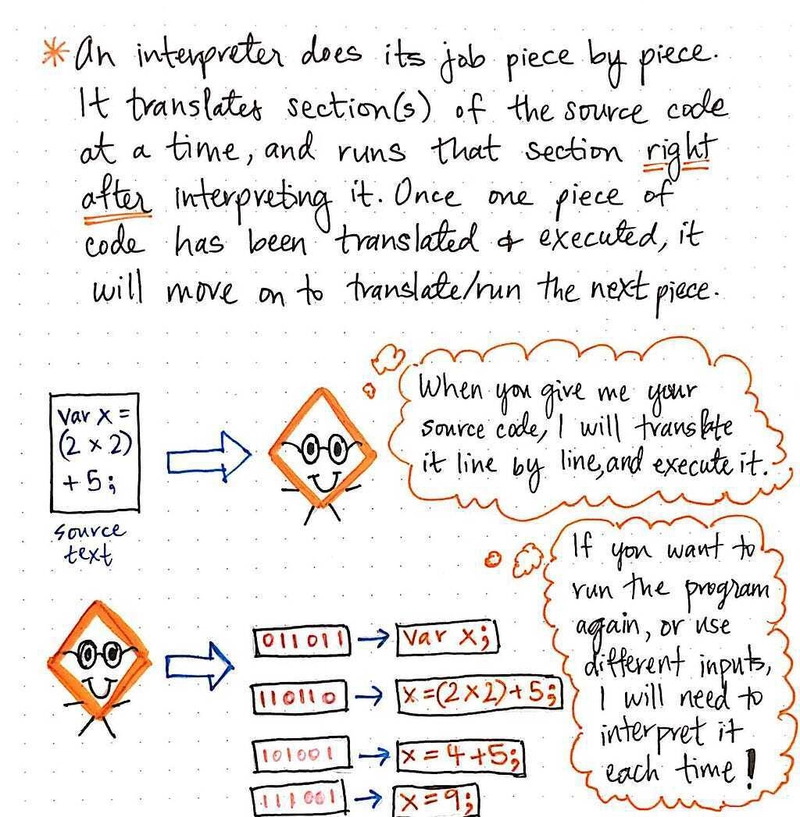 * An interpreter does its job piece by piece.
It translates section(s) of the source code
at a time, and runs that section right
after interpreting it. Once one piece of
code has been translated & executed, it
will move on to translate/run the next piece.
var x =
(2 x 2)
+ 5;
source
text
When you give me your
source code, I will translate
it line by line, and execute it.
If you want to
run the program
again, or use
different inputs,
I will need to
interpret it
each time!
011011 → var x;
110110 → x=(2x2)+5;
101001 → x = 4+5;
111001 → x = 9;